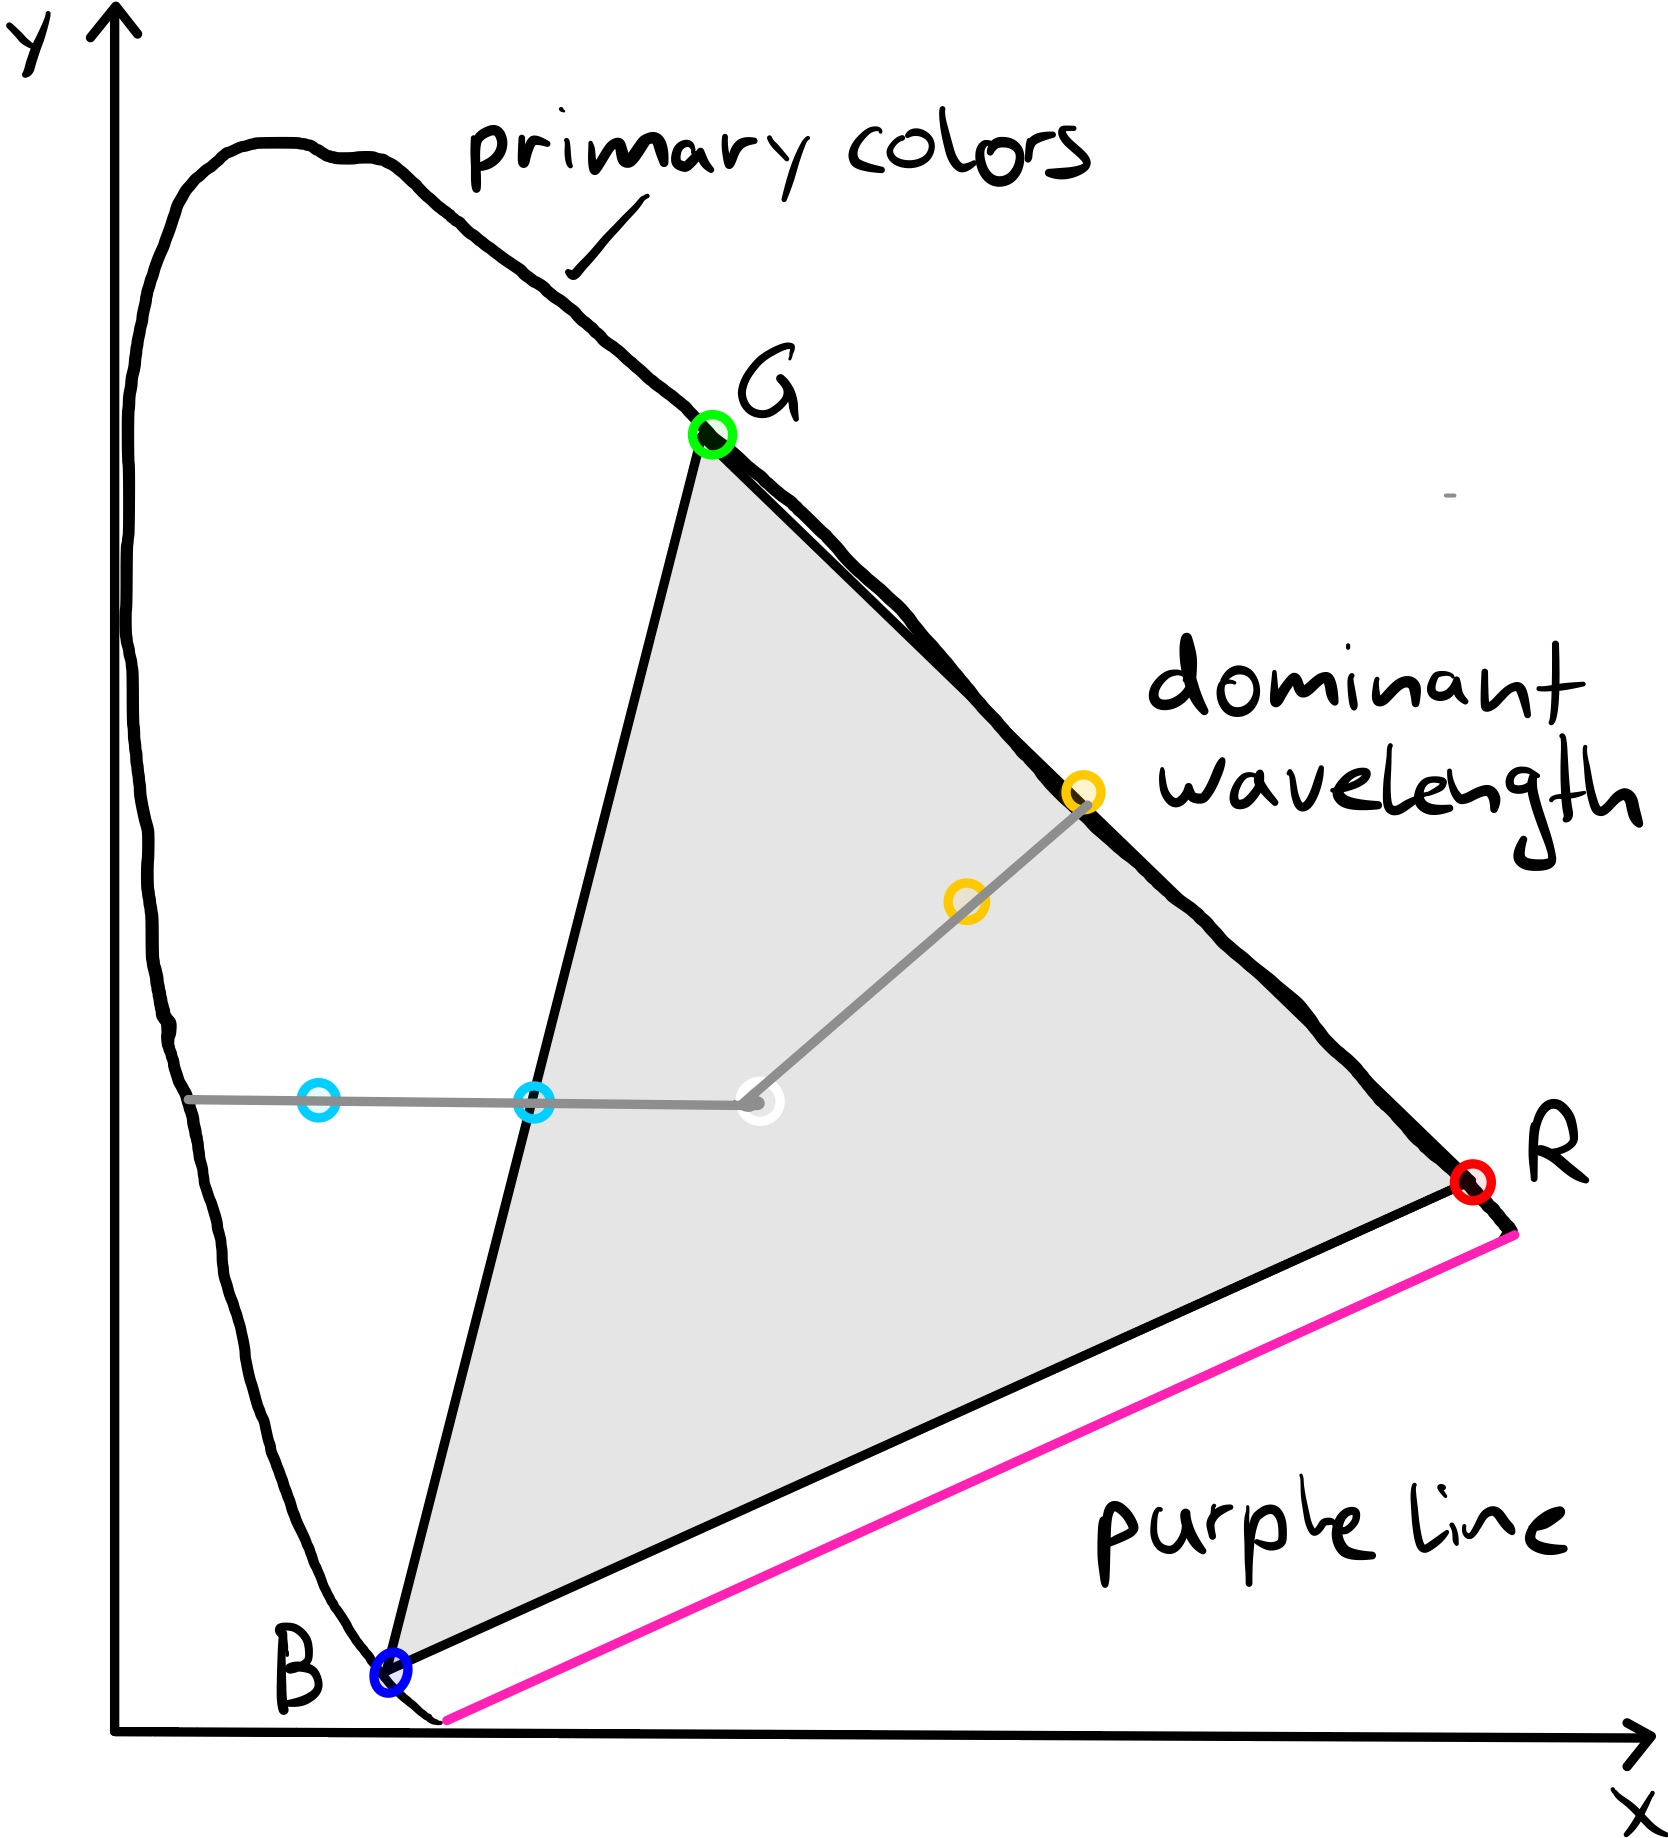 y
primary colors
G
dominant
wavelength
R
purple line
B
x